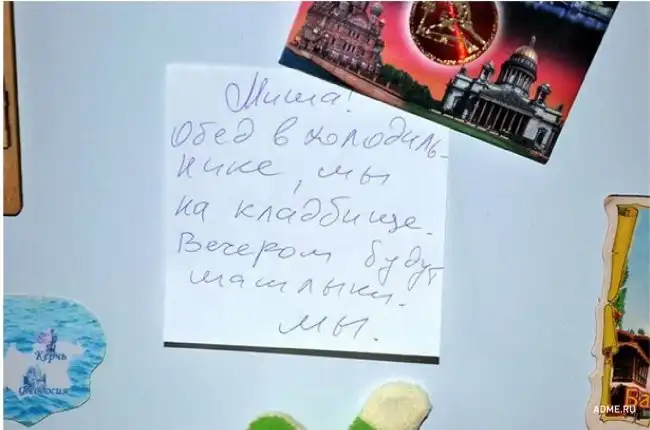 Миша!
Обед в холодиль-
нике, мы
на кладбище.
Вечером будут
шашлыки.
Мы.
Керчь
Феодосия
Ba
ADME.RU